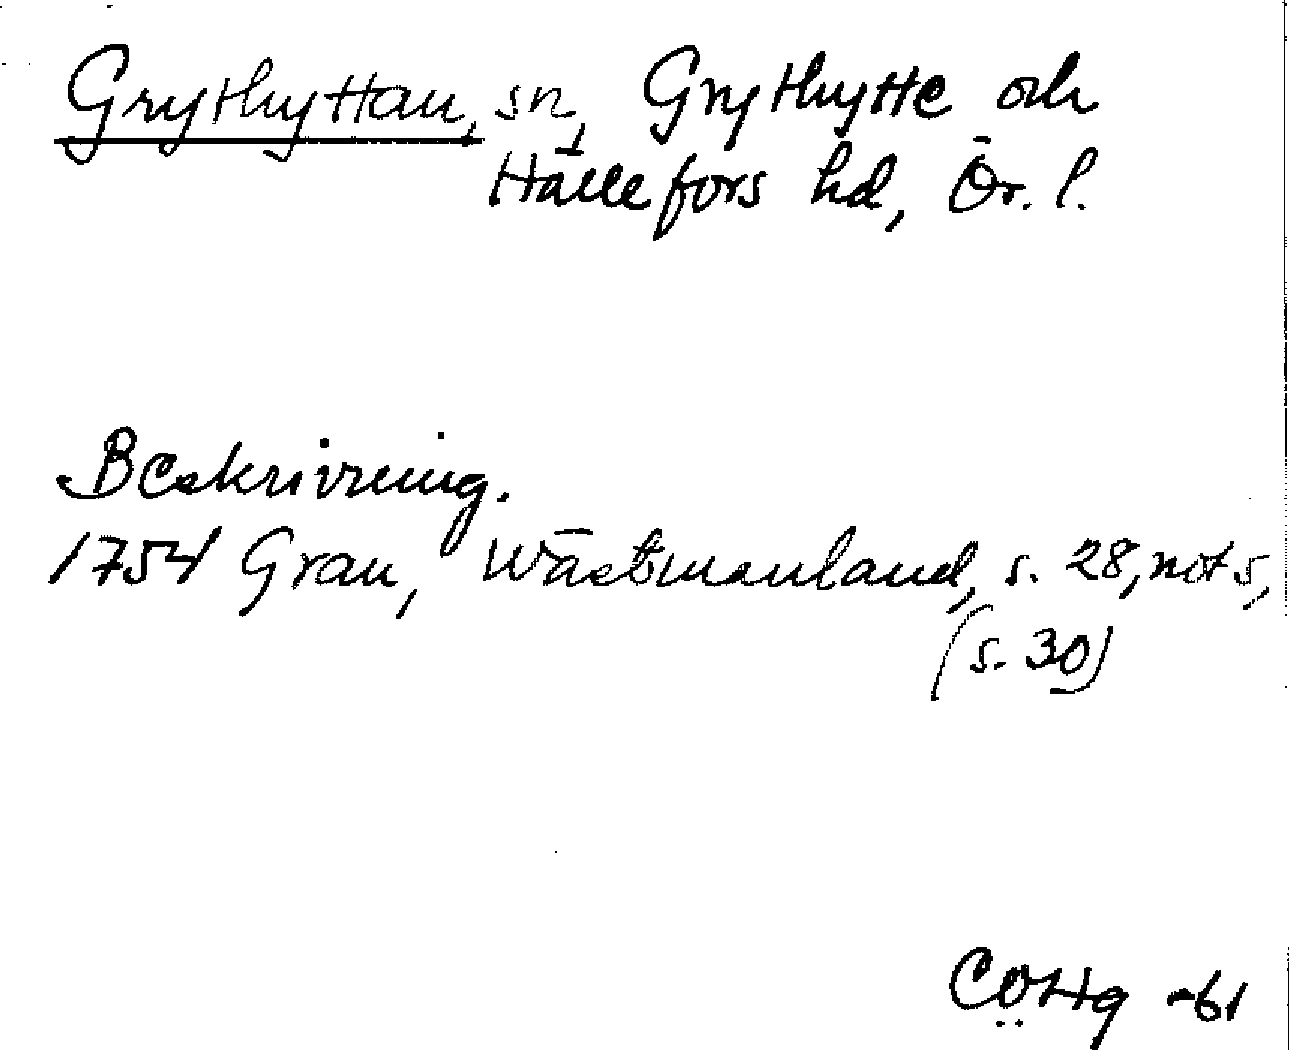 Grythyttan, sn, Grythytte och
Hällefors hd, Ör. l.
Beskrivning.
1754 Grau, Wästmanland, s. 28, not 5,
(s. 30)
CÖHg -61